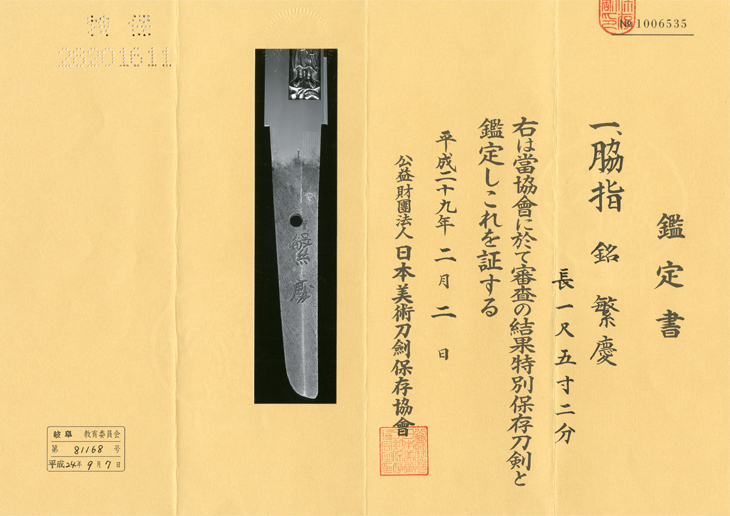 № 1006535
鑑定書
一、脇指 銘 繁慶
長一尺五寸二分
右は當協會に於て審査の結果特別保存刀剣と
鑑定しこれを証する
平成二十九年 二月 二日
公益財團法人 日本美術刀劍保存協會
繁慶
岐阜 教育委員会
第 81168 号
平成24年9月7日